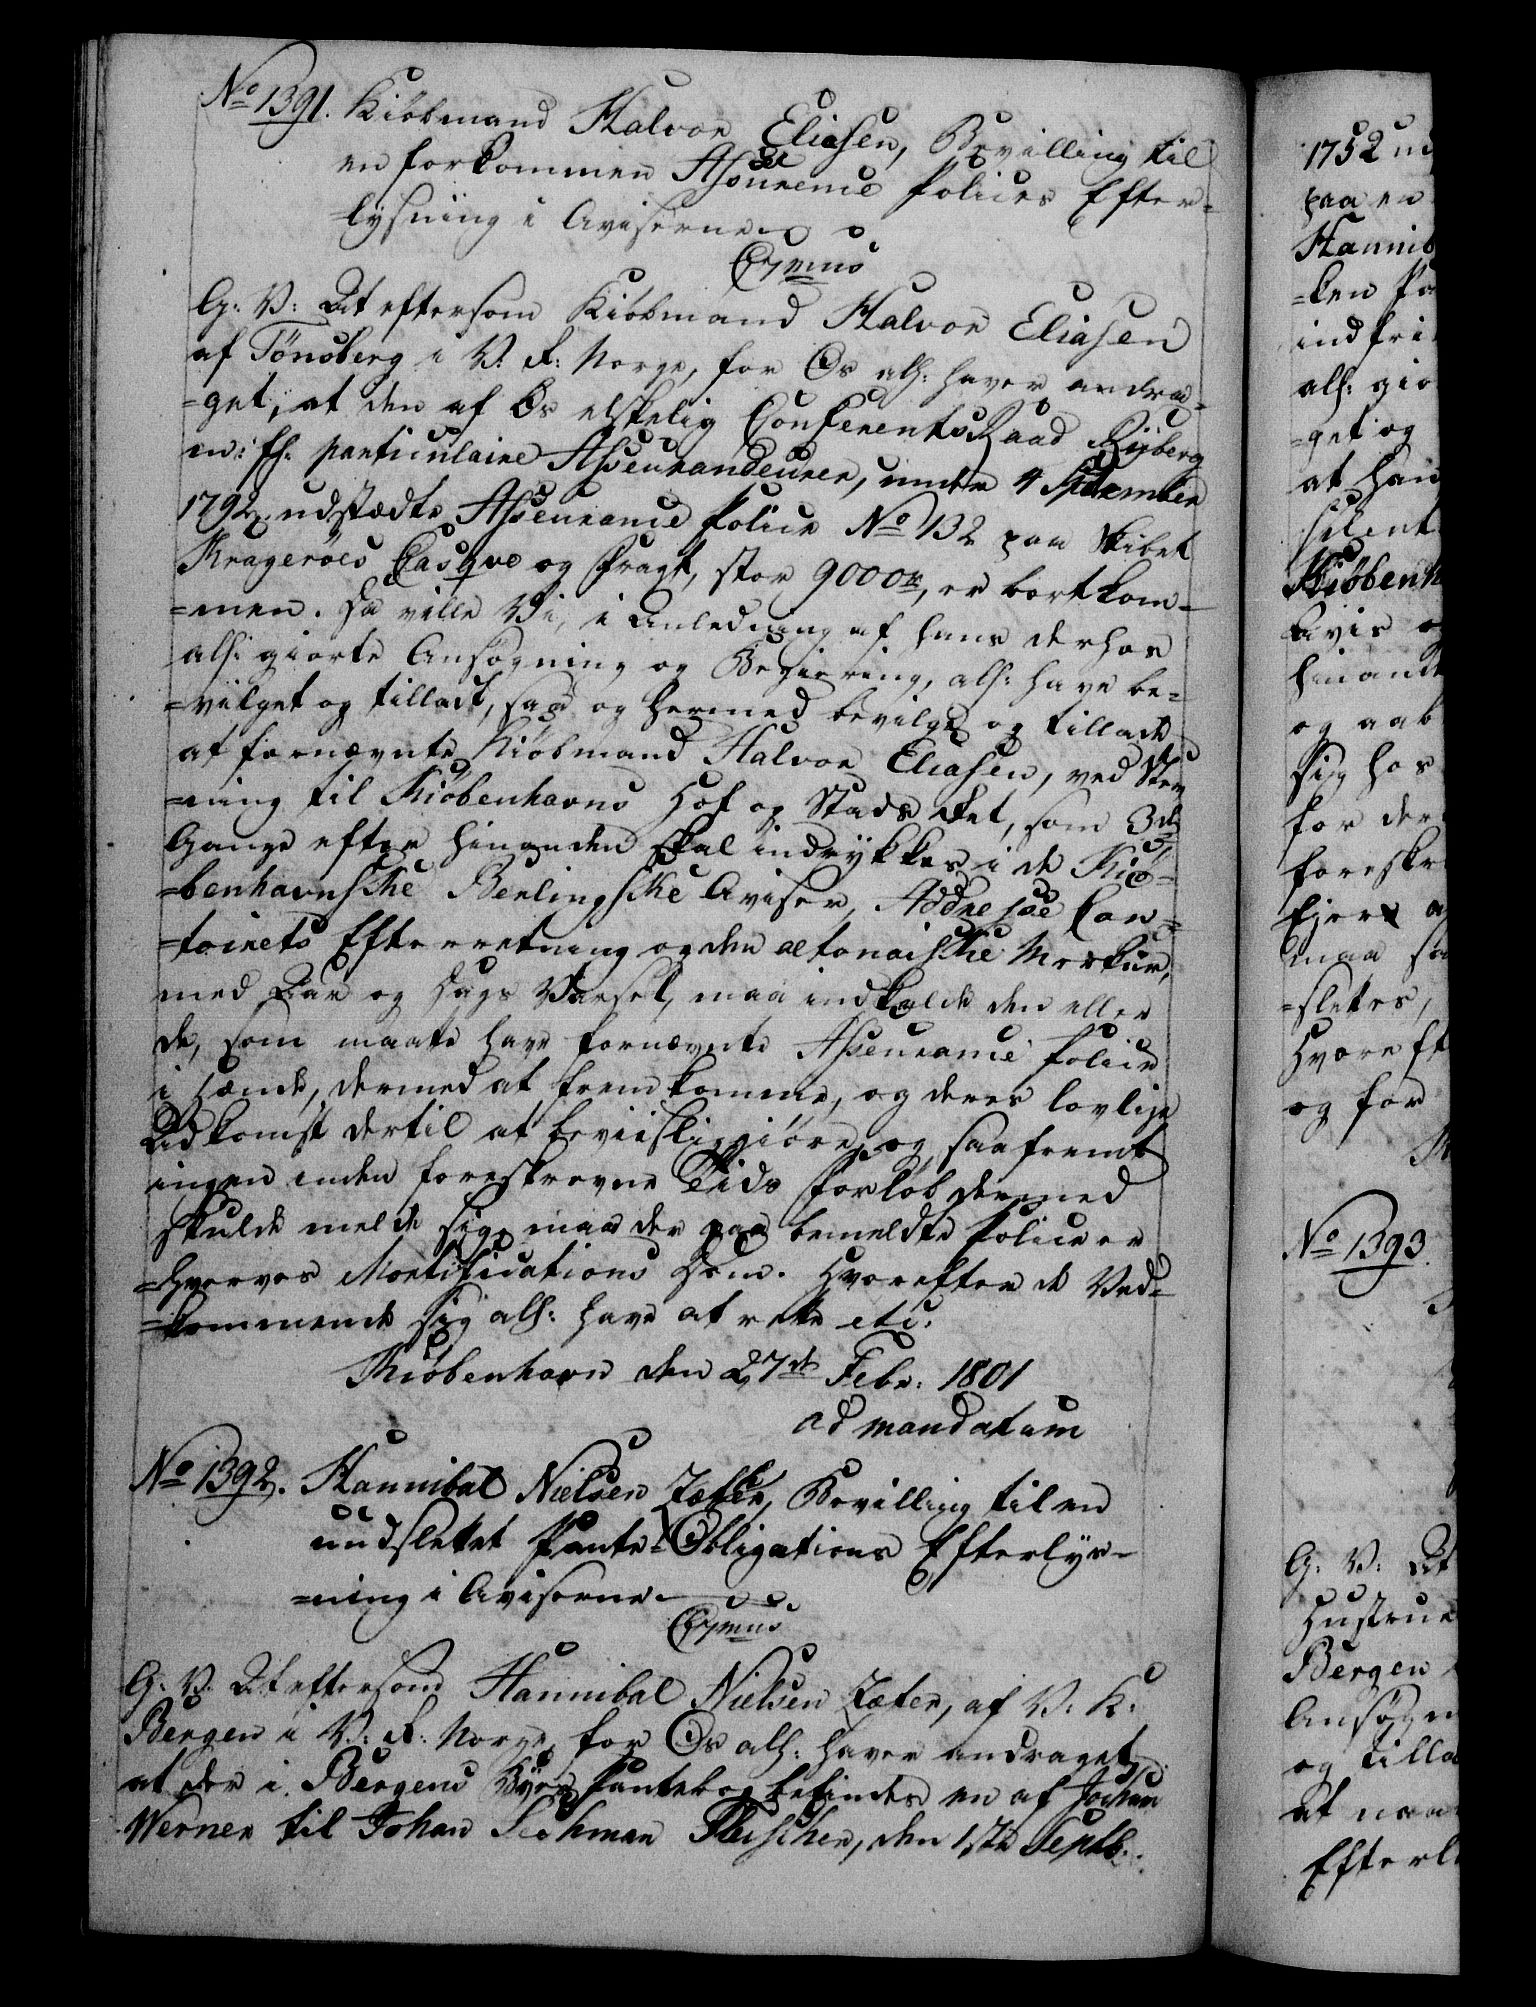 No 1391. Kiøbmand Halvor Eliasen, Bevilling til
en forkommen Assurence Polices Efter-
=lysning i Aviserne
Cymus
G: V: At eftersom Kiøbmand Halvor Eliasen
af Tönsberg i V: R: Norge, for Os alh: haver andra-
=get, at den af Os elskelig ConferentsRaad Ryberg
en: fl: particulaire Asseurandeurer, under 4 September
1792 udstædte Asseurance Police No 132 paa Skibet
Kragerøes Casqve og Fragt, stor 9000 rd, er bortkom-
=men. Da ville Vi, i Anledning af hans derhos
alh: giorte Ansøgning og Begiering, alh: have be-
=vilget og tilladt, saa og hermed bevilge og tillade
at fornævnte Kiøbmand Halvor Eliasen, ved Stev
=ning til Kiøbenhavns Hof og Stads Ret, som 3de
Gange efter hinanden skal indrykkes i de Kiø-
=benhavnske Berlingske Aviser, Addresse Con-
=toirets Efterretning og den altonaiske Merkur,
med Aar og Dags Varsel, maa indkalde den eller
de, som maate have fornævnte Asseurance Police
i Hænde, dermed at fremkomme, og deres lovlige
Adkomst dertil at beviisliggiøre, og saafremt
ingen inden foreskrevne Tids Forløb dermed
skulde melde sig, maa der paa bemeldte Police er
=hverves Mortifications Dom. Hvorefter de Ved-
=kommende sig alh: have at rette etc.
Kiøbenhavn den 27de Febr: 1801
ad mandatum
No 1392. Hannibal Nielsen Zæter, Bevilling til en
uudslettet Pante-Obligations Efterlys-
=ning i Aviserne
Cymus
G: V: At eftersom Hannibal Nielsen Zæter, af V: K:
Bergen i V: R: Norge, for Os alh: haver andraget,
at der i Bergens Byes Pantebog befindes en af Jochum
Werner til Johan Fleischer, den 1ste Septb:
1752 ud
paa en
Hannib
=ken Pa
indfri
alh: gio
=get og
at han
Kiøbenh
Avis og
hinand
og aab
sig hos
for der
foreskr
Ejer a
maa sa
=slettes,
Hvoreft
og for
No 1393.
G: V: At
Hustrue
Bergen
Ansøgn
og tilla
at naa
Efterl